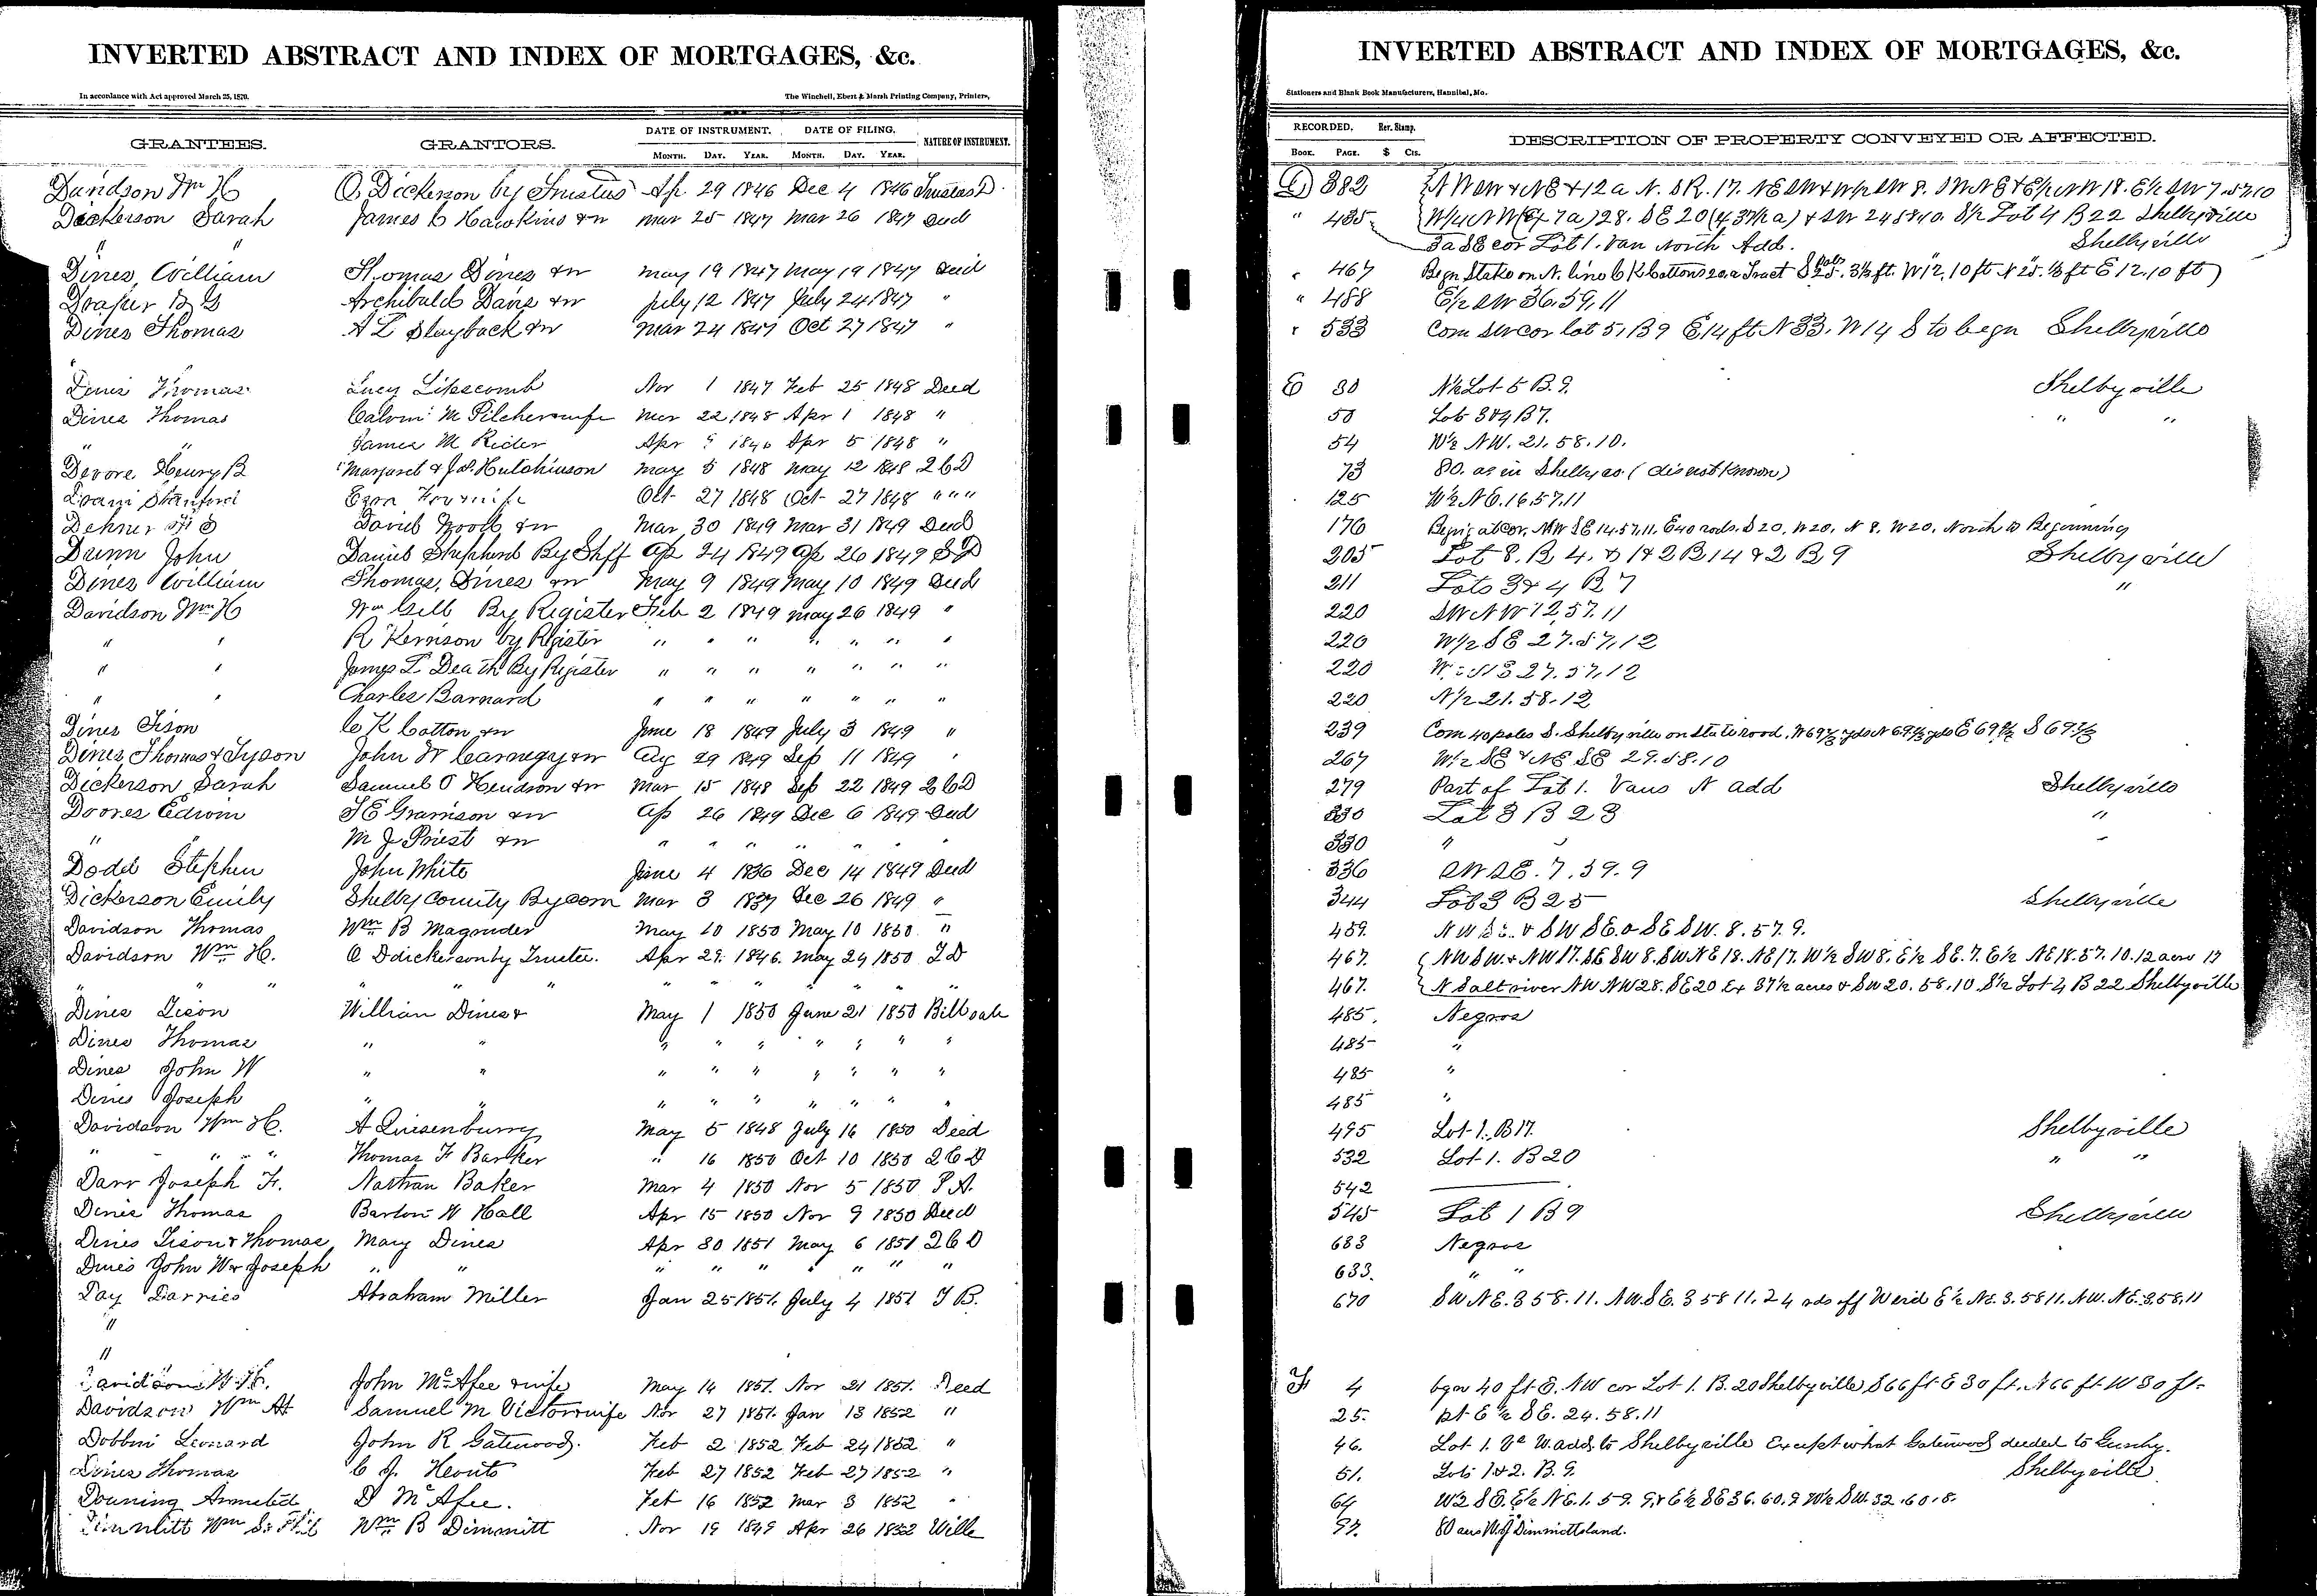 INVERTED ABSTRACT AND INDEX OF MORTGAGES, &c.
In accordance with Act approved March 25, 1870.
The Winchell, Ebert & Marsh Printing Company, Printers,
GRANTEES.
GRANTORS.
DATE OF INSTRUMENT.
DATE OF FILING.
NATURE OF INSTRUMENT.
MONTH. DAY. YEAR. MONTH. DAY. YEAR.
Davidson Wm H O. Dickerson by Trustus Ap. 29 1846 Dec 4 1846 Trustees D.
Dickerson Sarah James C Hawkins & w Mar 25 1847 Mar 26 1847 Deed
"
Dines, William Thomas Dines & w May 19 1847 May 19 1847 Deed
Draper B G Archibald Davis & w July 12 1847 July 24 1847 "
Dines Thomas A L Slayback & w Mar 24 1847 Oct 27 1847 "
Dines Thomas Lucy Lipscomb Nov 1 1847 Feb 25 1848 Deed
Dines Thomas Calvin M Pilcher & wife Mar 22, 1848 Apr 1 1848 "
" " James M Rider Apr Apr 5 1848 "
Devore Henry B Margaret & J. Hutchinson May 5 1848 May 12 1848 2 C D
Ezra & wife Oct 27 1848 Oct 27 1848 " " "
Dehner David Wood & w Mar 30 1849 Mar 31 1849 Deed
Dunn John Daniel Shepherd By Shff Ap 24 1849 Ap 26 1849 S D
Dines William Thomas, Dines & w May 9 1849 May 10 1849 Deed
Davidson Wm H Wm Gill By Register Feb 2 1849 May 26 1849 "
" " R Kernison by Register " " " " " " "
" " James L Death By Register " " " " " " "
" " Charles Barnard " " " " " " "
Dines Tison C K Cotton & w June 18 1849 July 3 1849 "
Dines, Thomas & Tyson John W Carnegy & w Aug 29 1849 Sep 11 1849 "
Dickerson Sarah Samuel O Hendson & w Mar 15 1848 Sep 22 1849 2 C D
Doores Edwin J E Grarrison & w Ap 26 1849 Dec 6 1849 Deed
" M J Priest & w " " " " " " "
Dodd Stephen John White June 4 1836 Dec 14 1849 Deed
Dickerson Emily Shelby County By Com Mar 3 1837 Dec 26 1849 "
Davidson Thomas Wm B Magruder May 10 1850 May 10 1850 "
Davidson Wm H. O Ddickerson by Trustee. Apr 29. 1846. May 24 1850 T D
" " " " " " " " " " "
Dines Tison William Dines & May 1 1850 June 21 1850 Bill sale
Dines Thomas " " " " " " " " "
Dines John W " " " " " " " " "
Dines Joseph " " " " " " " " "
Davidson Wm H. A Quisenburry May 5 1848 July 16 1850 Deed
" " " " Thomas F Barker " 16 1850 Oct 10 1850 2 C D
Darr Joseph F. Nathan Baker Mar 4 1850 Nov 5 1850 P. A.
Dines Thomas Barton W Hall Apr 15 1850 Nov 9 1850 Deed
Dines Tison & Thomas Mary Dines Apr 30 1851 May 6 1851 2 C D
Dines John W & Joseph " " " " " " " " "
Day Darries Abraham Miller Jan 25 1851. July 4 1851 T B.
"
"
Davidson W. H. John McAfee & wife May 14 1851. Nov 21 1851. Deed
Davidson Wm H Samuel M Victor & wife Nov 27 1851. Jan 13 1852 "
Dobbin Leonard John R Gatewood. Feb 2 1852 Feb 24 1852 "
Dines Thomas C J. Heonts Feb 27 1852 Feb 27 1852 "
Douning D McAfee. Feb 16 1852 Mar 3 1852 "
Dimmitt Wm Wm B Dimmitt Nov 19 1849 Apr 26 1852 Wille
INVERTED ABSTRACT AND INDEX OF MORTGAGES, &c.
Stationers and Blank Book Manufacturers, Hannibal, Mo.
RECORDED. Rev. Stamp.
DESCRIPTION OF PROPERTY CONVEYED OR AFFECTED.
BOOK. PAGE. $ Cts.
D 382
" 485 Lot 4 B 22 Shelbyville
3 a SE cor Lot 1. Van North Add. Shellyville
" 467 Begn Stake on N. line C K Cottons
" 488 E½ SW 36, 59, 11
" 533 Com SW cor lot 5, B 9 E 14 ft N 33. W 14 S to begn Shellyville
E 30 N½ Lot 5 B. 9. Shelbyville
50 Lots 3 & 4 B 7. " "
54 W½ NW. 21. 58. 10.
73 80. as in Shelby co. (dis not known)
125 W½ NE. 16. 57. 11
176 Begin at cor. NW SE 14. 57. 11. E 40 rods. S 20. W 20. N 8. W 20. North to Beginning
205 Lot 8. B 4. & 1 & 2 B 14 & 2 B 9 Shelbyville
211 Lots 3 & 4 B 7 "
220 SW NW 12, 57. 11
220 W½ SE 27. 57, 12
220 27. 57, 12
220 N½ 21. 58. 12
239 Com 40 poles S. Shelbyville on State road,
267 W½ SE & NE SE 29. 58. 10
279 Part of Lot 1. Vans N add Shelbyville
330 Lot 3 B 23 "
330 " "
336 SW SE. 7. 59. 9
344 Lot 3 B 25 Shelbyville
459. SW SE. & SE SW. 8. 57. 9.
467. NW SW. & NW 17. SE SW 8. SW NE 18. NE 17. W½ SW 8. E½ SE. 7. E½ NE 18. 57. 10. 12 acres 17
467. N Salt river NW NW 28. SE 20 Ex 37½ acres & SW 20. 58. 10. S½ Lot 4 B 22 Shelbyville
485. Negros
485 "
485 "
485 "
495 Lot 1. B 17. Shelbyville
532 Lot 1. B 20 " "
542
545 Lot 1 B 9 Shelbyville
633 Negros
633. " "
670 SW NE. 3 58. 11. NW. SE. 3 58 11. 24 rds off W end E½ NE. 3. 58 11. NW. NE. 3. 58. 11
F 4 bgn 40 ft E. NW cor Lot 1. B. 20 Shelbyville S 66 ft E 30 ft. N 66 ft W 30 ft.
25. pt E½ SE. 24. 58. 11
46. Lot 1. Va W. add to Shelbyville Except what Gatewood deeded to
51. Lots 1 & 2. B. 9. Shelbyville
64 E½ NE. 1. 59. 9, & E½ SE 36. 60. 9 W½ SW. 32. 60. 8.
97. 80 acrs Dimmitts land.